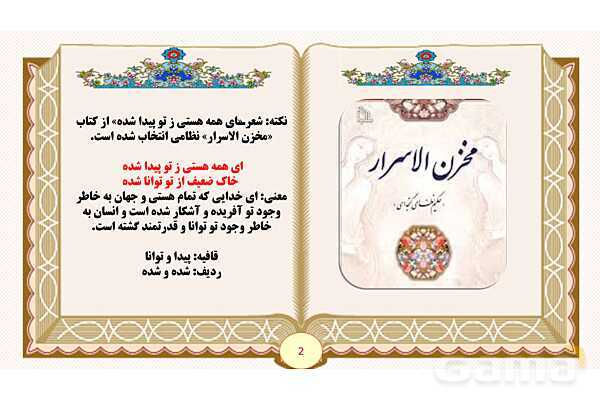 نکته: شعر«ای همه هستی ز تو پیدا شده» از کتاب
«مخزن الاسرار» نظامی انتخاب شده است.
ای همه هستی ز تو پیدا شده
خاک ضعیف از تو توانا شده
معنی: ای خدایی که تمام هستی و جهان به خاطر
وجود تو آفریده و آشکار شده است و انسان به
خاطر وجود تو توانا و قدرتمند گشته است.
قافیه: پیدا و توانا
ردیف: شده و شده
مخزن الاسرار
حکیم نظامی گنجه‌ای
2
Gama